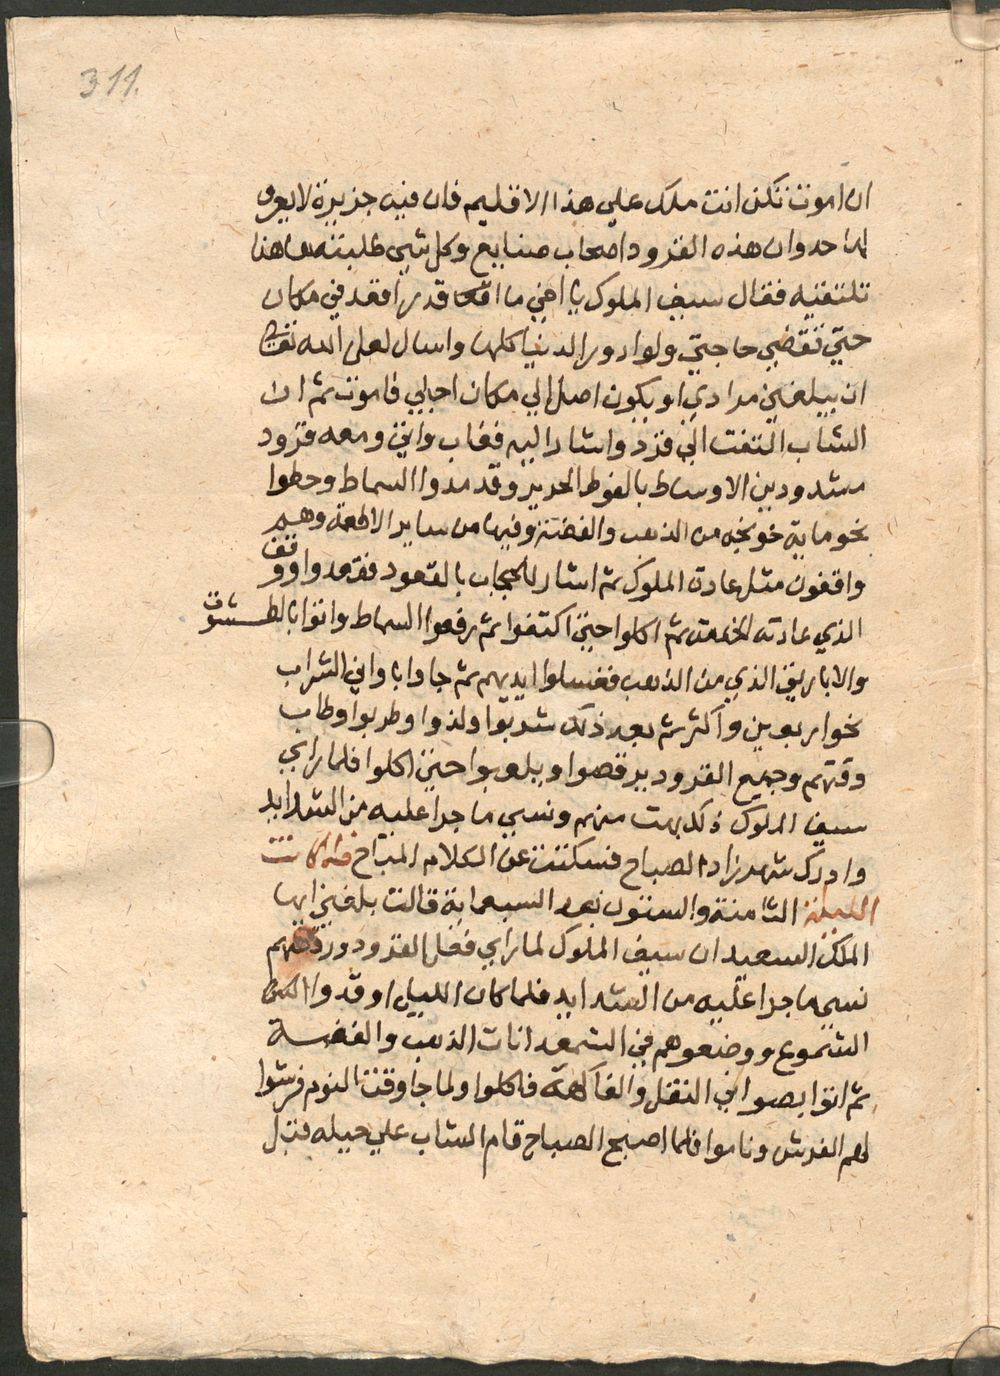 311.
ان اموت تكن انت ملك علي هذا الاقليم فان فيه جزيرة لا يعرف
لها احد وان هذه القرود اصحاب صنايع وكل شي طلبته هاهنا
تلتقيه فقال سيف الملوك يا اخي ما اقدر اقعد في مكان
حتي تقضي حاجتي ولو ادور الدنيا كلها واسال لعل الله تعالي
ان يبلغني مرادي او يكون اصل الي مكان اجلي فاموت ثم ان
الشاب التفت الي قرد واشار اليه فغاب واتي ومعه قرود
مشدودين الاوساط بالفوط الحرير وقد مدوا السماط وحطوا
نحو ماية خونجه من الذهب والفضة وفيها من ساير الاطعمة وهم
واقفون مثل عادة الملوك ثم اشار للحجاب بالقعود فقعدوا ووقف
الذي عادته الخدمة ثم اكلوا حتي اكتفوا ثم رفعوا السماط واتوا بالطشوت
والاباريق الذي من الذهب فغسلوا ايديهم ثم جاوا باواني الشراب
نحو اربعين واكثر ثم بعد ذلك شربوا ولذوا وطربوا وطاب
وقتهم وجميع القرود يرقصوا ويلعبوا حتي اكلوا فلما راي
سيف الملوك ذلك بهت منهم ونسي ما جرا عليه من الشدايد
وادرك شهرزاد الصباح فسكتت عن الكلام المباح فلما كانت
الليلة الثامنة والستون بعد السبعماية قالت بلغني ايها
الملك السعيد ان سيف الملوك لما راي فعل القرود ورقصهم
نسي ما جرا عليه من الشدايد فلما كان الليل اوقدوا
الشموع ووضعوهم في الشمعدانات الذهب والفضة
ثم اتوا بصواني النقل والفاكهة فاكلوا ولما جا وقت النوم فرشوا
لهم الفرش وناموا فلما اصبح الصباح قام الشاب علي حيله قبل